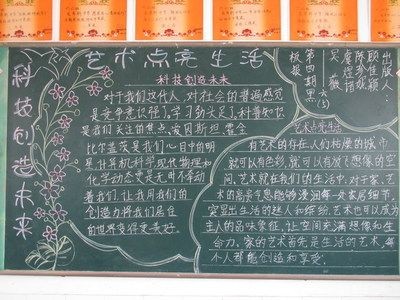 艺术点亮生活
科技创造未来
科技创造未来
对于我们这代人,对社会的普遍感觉
是竞争意识强了,学习劲头足了,科普知识
是我们关注的焦点,爱因斯坦 霍金
比尔盖茨是我们心目中的明
星计算机科学现代物理和
化学动态变是无时不牵动
着我们,让我用我们的
创造力将我们居住
的世界变得更美好。
艺术点亮生活
有艺术的存在,人们枯燥的城市
就可以有色彩,就可以有放飞想像的空
间,艺术就在我们的生活中,对于家,艺
术的高贵气息能够漫润每一处家居细节,
突显出生活的迷人和缤纷,艺术也可以成为
主人的品味象征,让空间充满想像和生
命力,家的艺术首先是生活的艺术,每
个人都能创造和享受。
第四期黑
板报
六(3)
出版人: